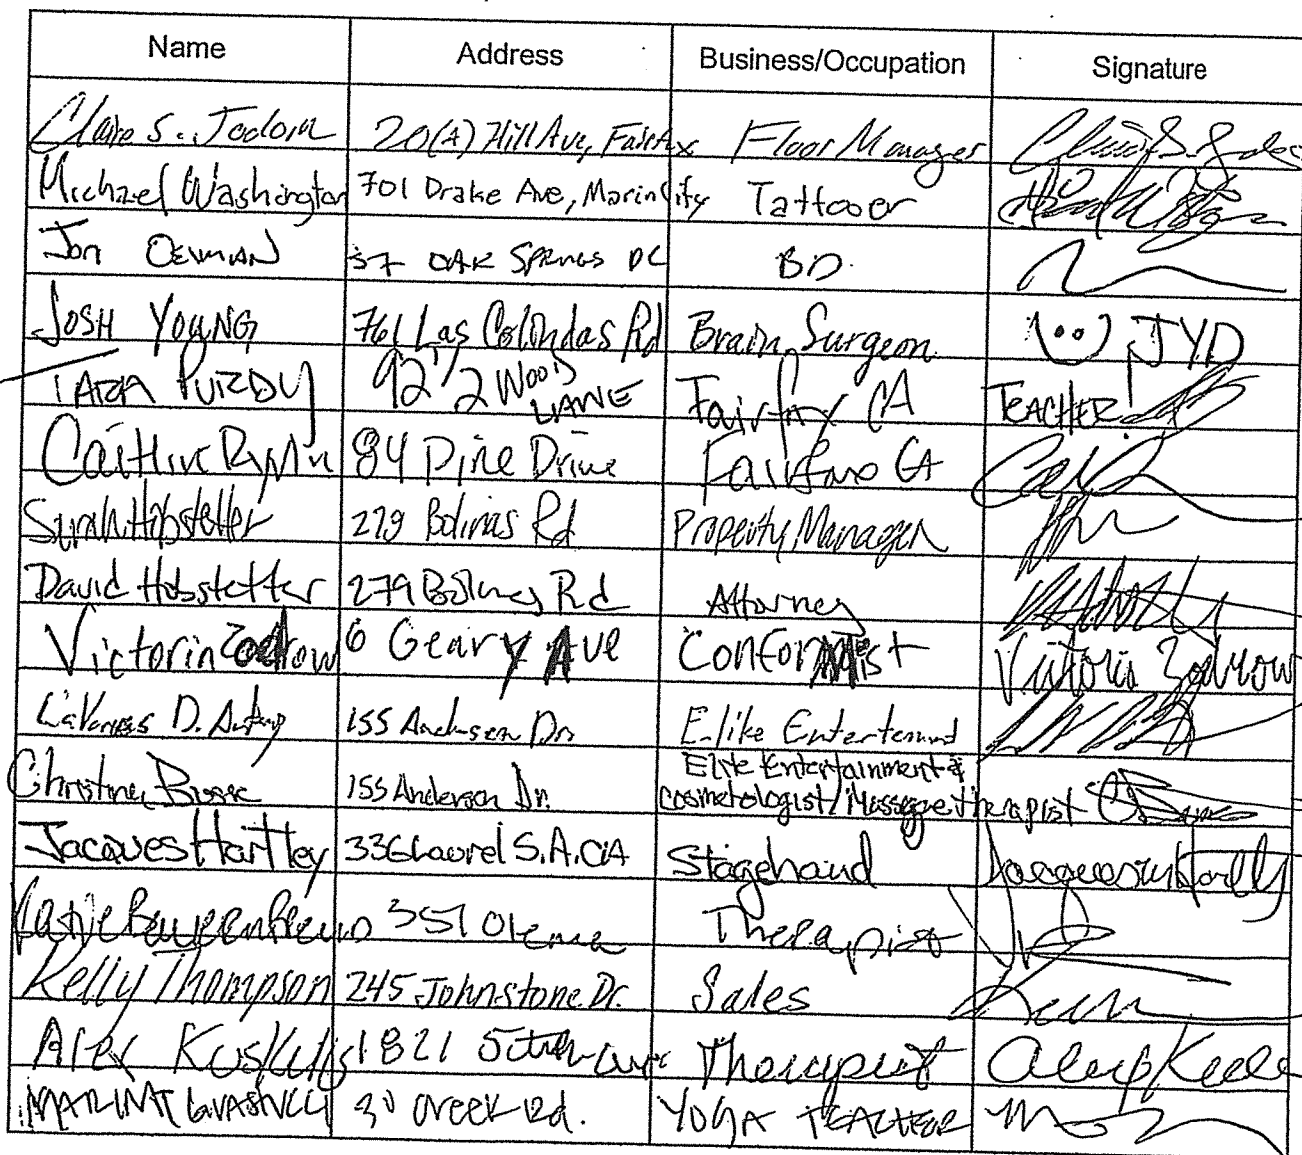 Name Address Business/Occupation Signature
Claire S. Jodoin 20(A) Hill Ave, Fairfax Floor Manager
Michael Washington 701 Drake Ave, Marin City Tattooer
Jon 37 OAK SPRINGS DR BD.
JOSH YOUNG 761 Las Colindas Rd Brain Surgeon JYD
TARA PURDY 92 1/2 WOOD LANE Fairfax CA TEACHER!
Caitlin 84 Pine Drive Fairfax CA
Sarah Hobstetter 279 Bolinas Rd Property Manager
David Hobstetter 279 Bolinas Rd Attorney
Victoria Zodrow 6 Geary Ave Conformist Victoria Zodrow
D. 155 Anderson Dr. Elike
Elite Entertainment &
Christina 155 Anderson Dr. cosmetologist/Massage therapist
Jacques Hartley 336 Laurel S.A. CA Stagehand
351 Olema Therapist
Kelly Thompson 245 Johnstone Dr. Sales
Alex 1821 Therapist
30 Creek Rd. YOGA TEACHER